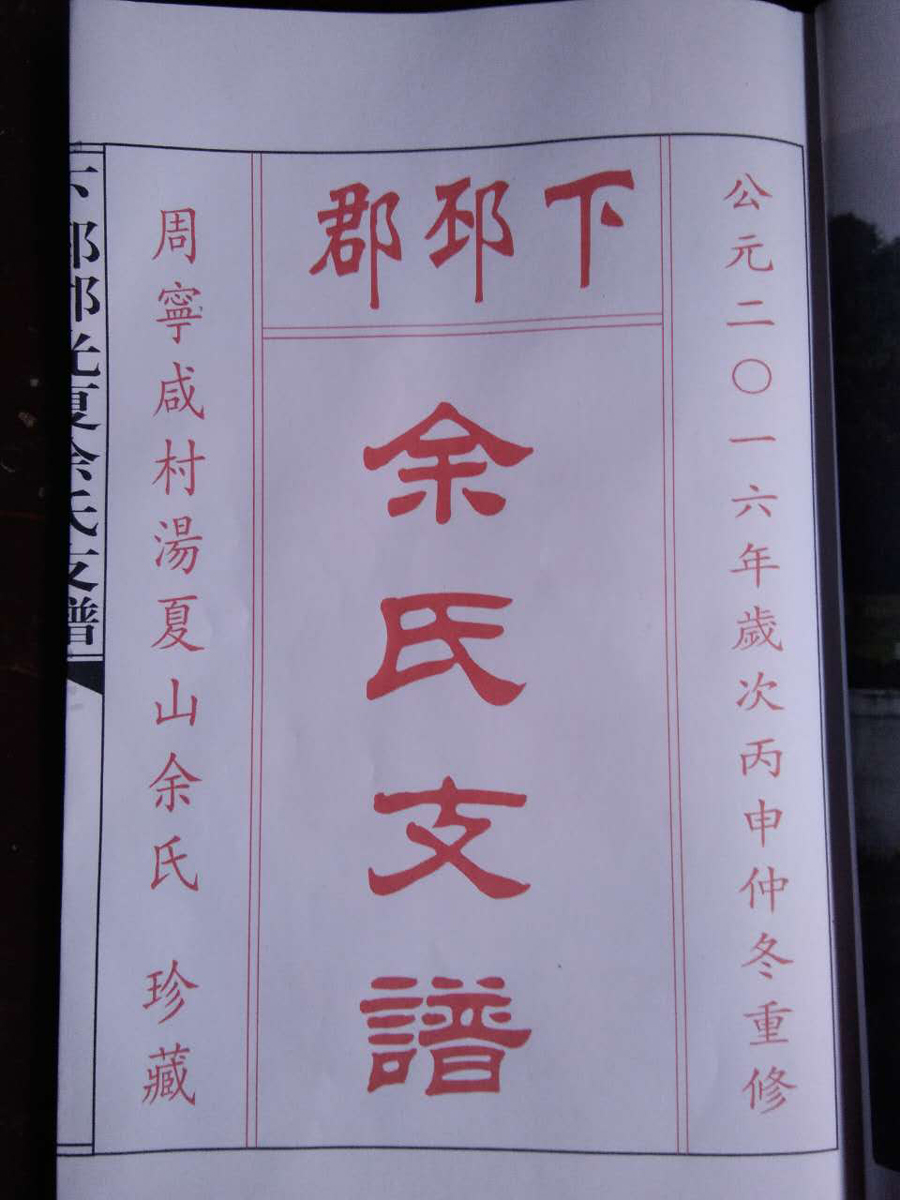 公元二〇一六年歲次丙申仲冬重修
下邳郡
余氏支譜
周寧咸村湯夏山余氏 珍藏
余氏支譜